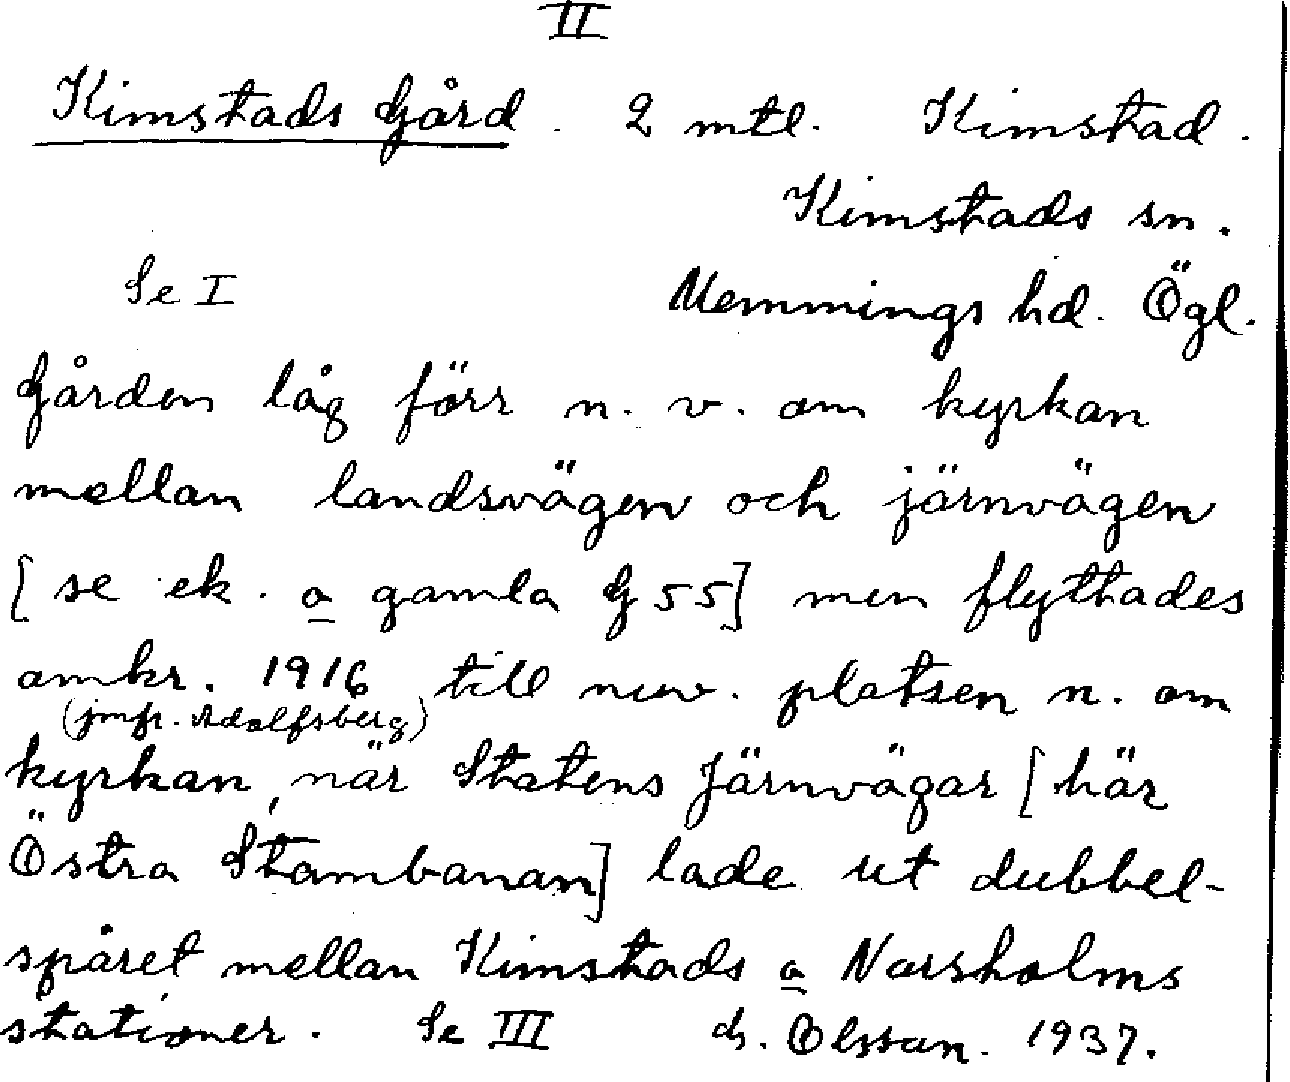 II
Kimstads Gård. 2 mtl. Kimstad.
Kimstads sn.
Se I Memmings hd. Ögl.
Gården låg förr n. v. om kyrkan
mellan landsvägen och järnvägen
[se ek. a gamla G 55] men flyttades
omkr. 1916 till nuv. platsen n. om
(jmfr. Adolfsberg)
kyrkan, när Statens Järnvägar [här
Östra Stambanan] lade ut dubbel-
spåret mellan Kimstads a Norsholms
stationer. Se III Olsson. 1937.